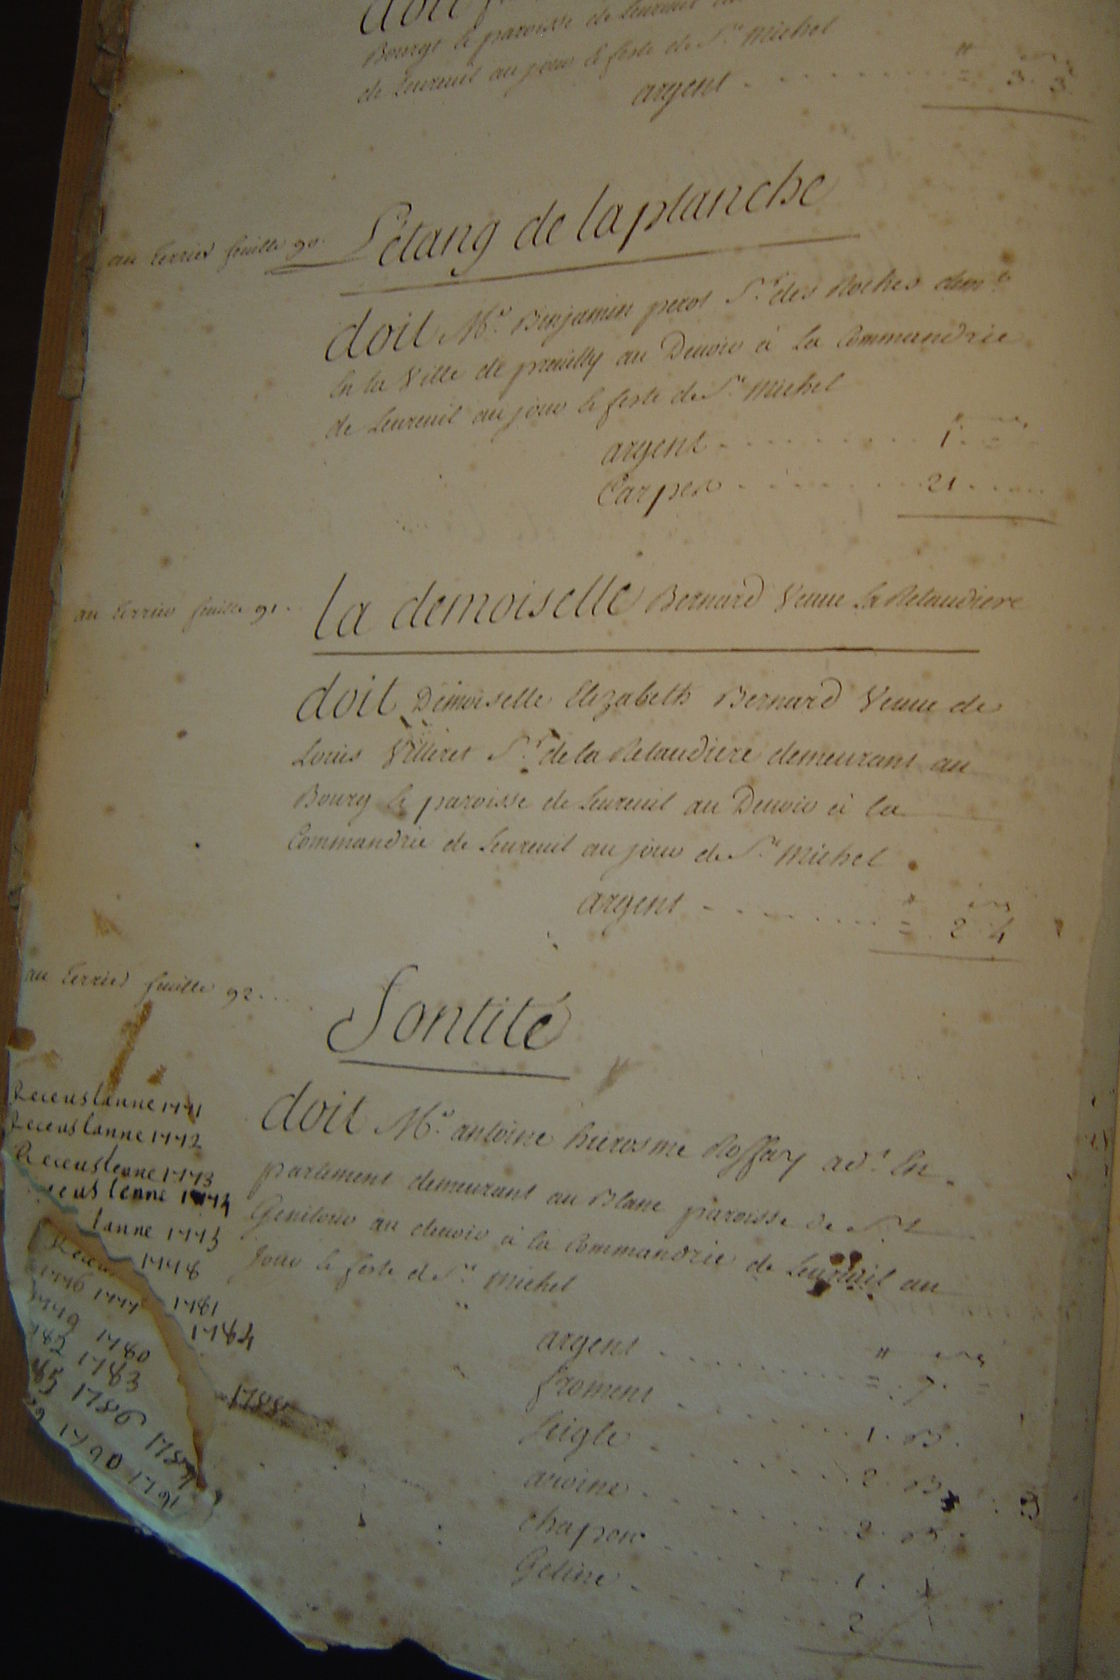 doit
Bourg & paroisse de Leureuil
de Leureuil au jour & feste de St. Michel
argent . . . . . . . = 3. 3
au terrier feuille 90.
L'étang de la planche
doit Me. Benjamin perot Sr. des Roches demt.
En la Ville de preuilly au Devoir à La Commandrie
de Leureuil au jour & feste de St. Michel
argent . . . . . . . 1. =
Carpes . . . . . . . 21 . . . .
au terrier feuille 91 . .
la demoiselle Bernard Veuue La Relaudiere
doit Demoiselle Elizabeth Bernard Veuue de
Louis Villeret Sr. de la Relaudiere demeurant au
Bourg & paroisse de Leureuil au Devoir à la
Commandrie de Leureuil au jour de St. Michel
argent . . . . . . . = 2. 4
au terrier feuille 92 . . . .
Sontité
doit Me. antoine hierosme Roffay adt. En
parlement demeurant au Blanc paroisse de St.
Genitour au deuoir à la Commandrie de Leureuil au
Jour & feste de St. Michel
argent . . . . . . . = . 7. =
froment . . . . . . . 1. B.
Seigle . . . . . . . 2. B
auoine . . . . . . . 2. B.
chapon . . . . . . . 1.
Geline . . . . . . . 2
Receus lanne 1771
Receus lanne 1772
Receus lenne 1773
ceus lenne 1774
lanne 1775
1778
1776 1777 1781
1779 1780 1784
82 1783
85 1786 1787 1788
89 1790 1791